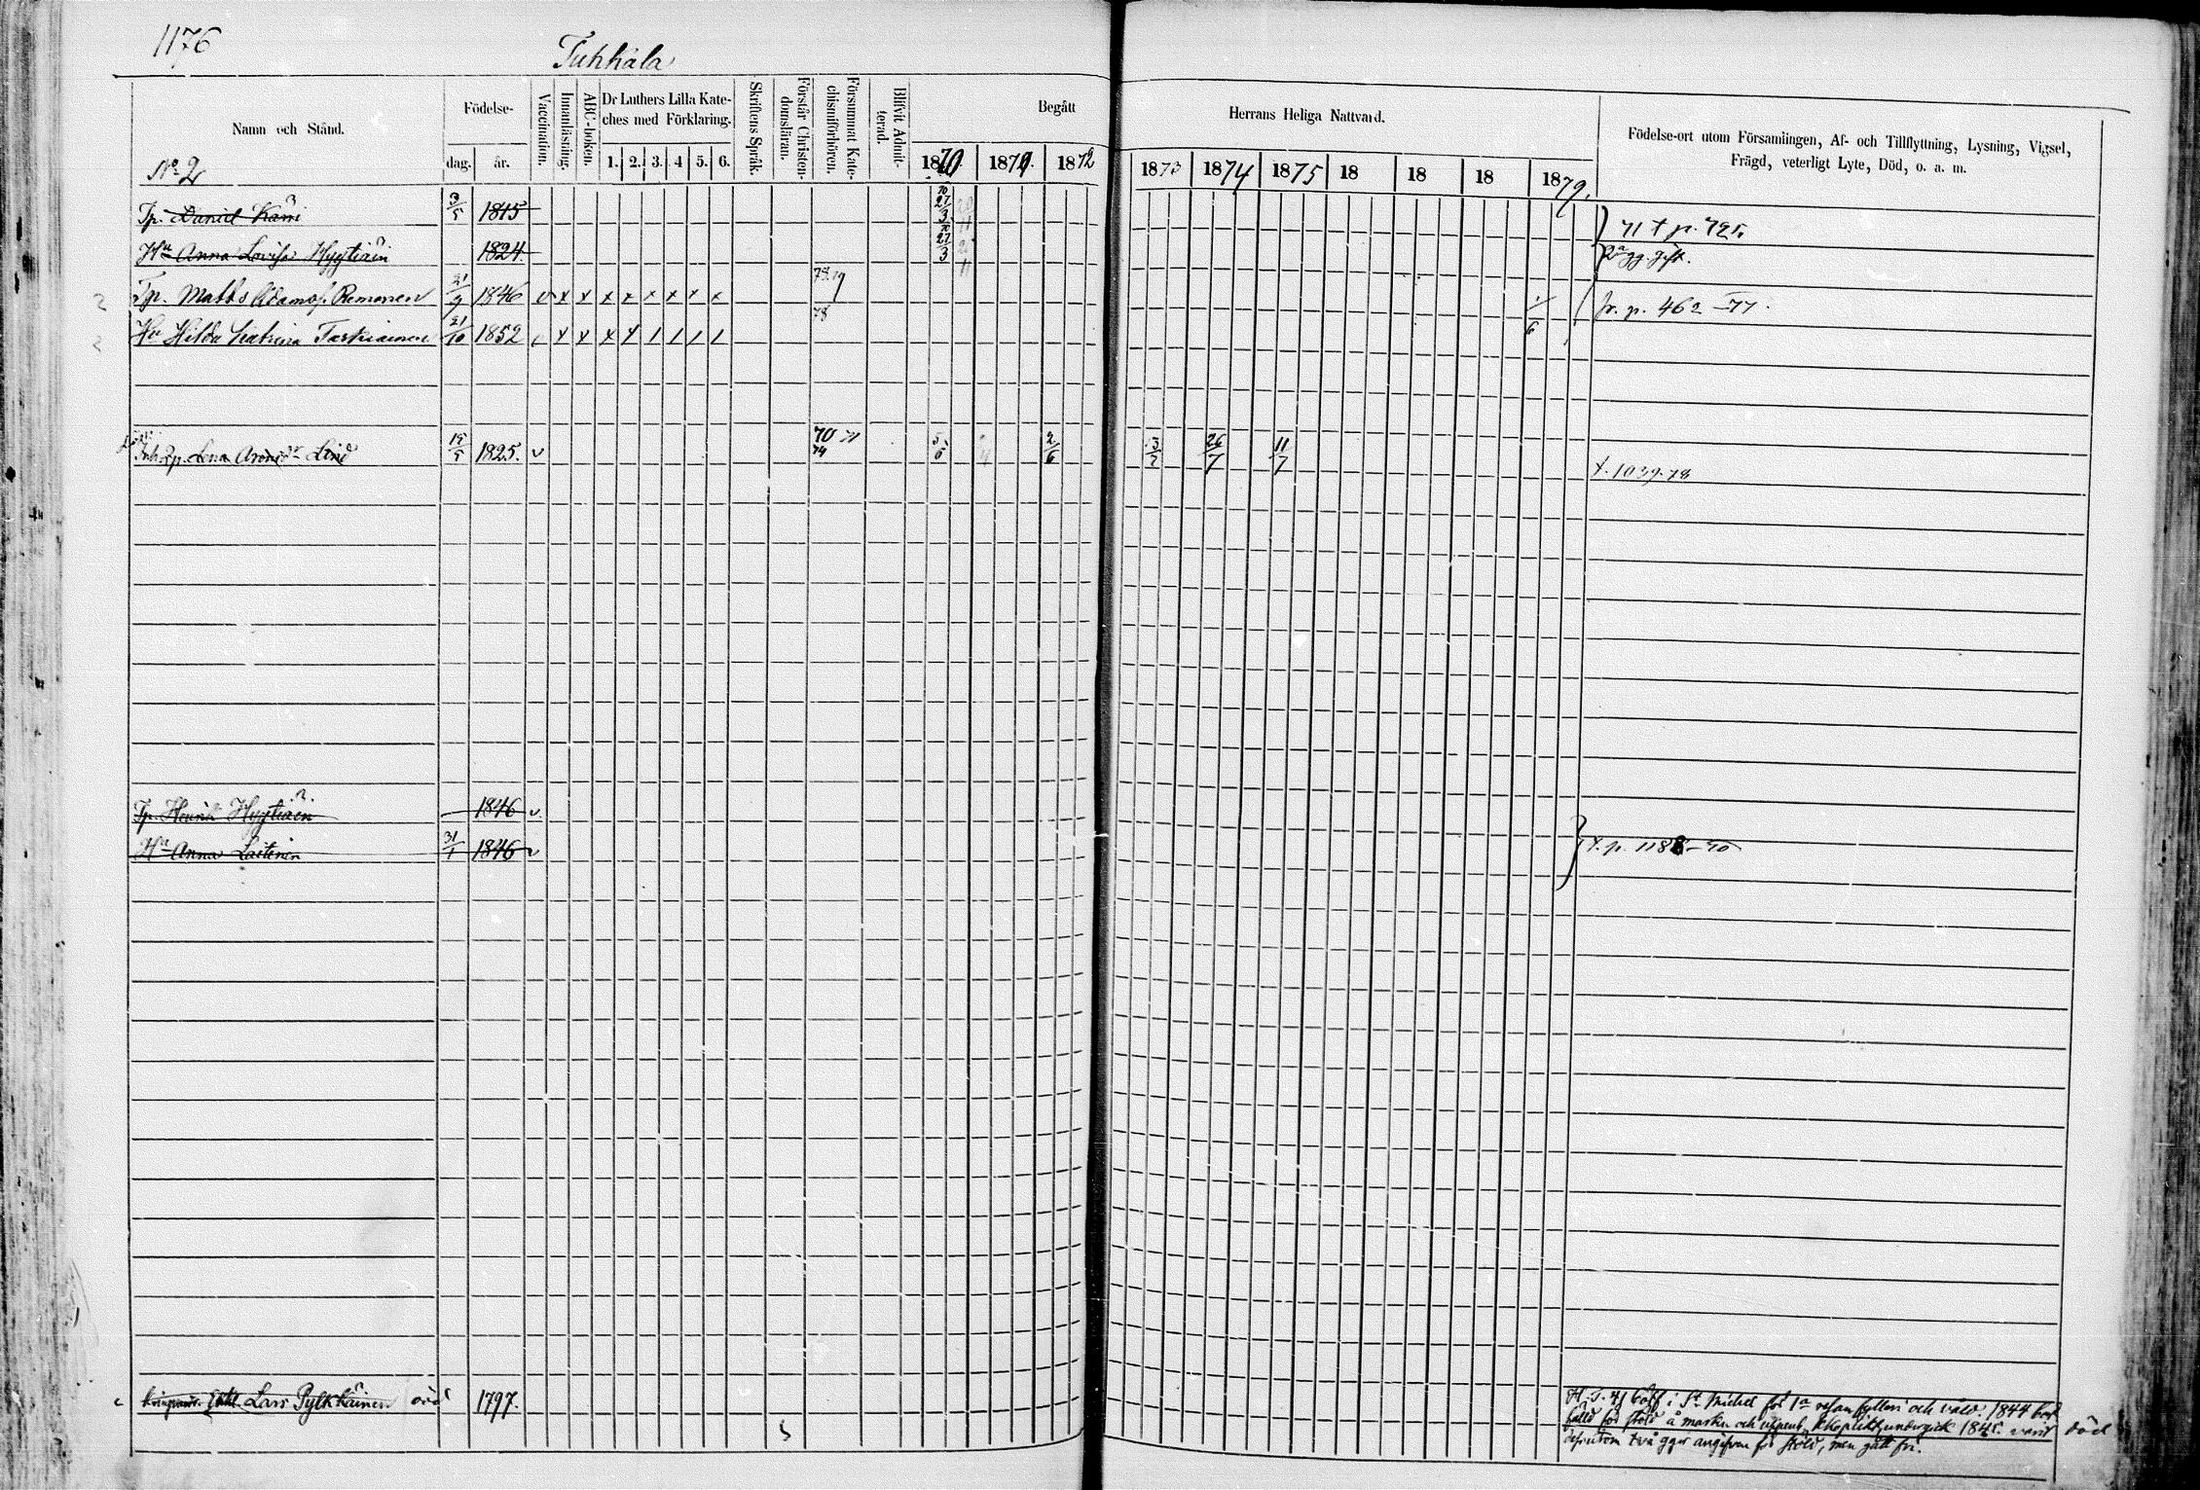 1176
Tuhkala
Namn och Stånd.
Födelse-
dag.
år.
Vaccination.
Innanläsning.
ABC-boken.
Dr Luthers Lilla Kate-
ches med Förklaring.
1. 2. 3. 4 5. 6.
Skriftens Språk.
Förstår Christen-
domsläran.
Försummat Kate-
chismiförhören.
Blifvit Admit-
terad.
Begått
Herrans Heliga Nattvard.
1870 1871 1872
1873 1874 1875 18 18 18 1879.
Födelse-ort utom Församlingen, Af- och Tillflyttning, Lysning, Vigsel,
Frägd, veterligt Lyte, Död, o. a. m.
No 2
Tp. Daniel 3/5 1815 27/3
Hu Anna Lovisa Hyytiäin 1824. 27/3
2a gg. gift.
Tp. Matts Adamsf. Remonen 21/9 1846 v x x x x x x x x 1/6 fr. p. 462 -77.
Hu Hilda Catrina Tarkiainen 21/10 1852 x x x x 1 1 1 1
78
Lena Lind 19/5 1825. v 70 71 74 2/6 3/7 26/7 11/7 t. 1039. 78
Tp. Henrik Hyytiäin 1846 v
Hu Anna Laitinen 31/1 1846 v t. p. 1188 - 70
Enkl. Lars Pylkkäinen död 1797.
i St Michel för 1a resan fylleri och våld 1844
för stöld å marken och kyrkoplikt undergick 1845. varit död
dessutom två ggr angifven för stöld, men gått fri.